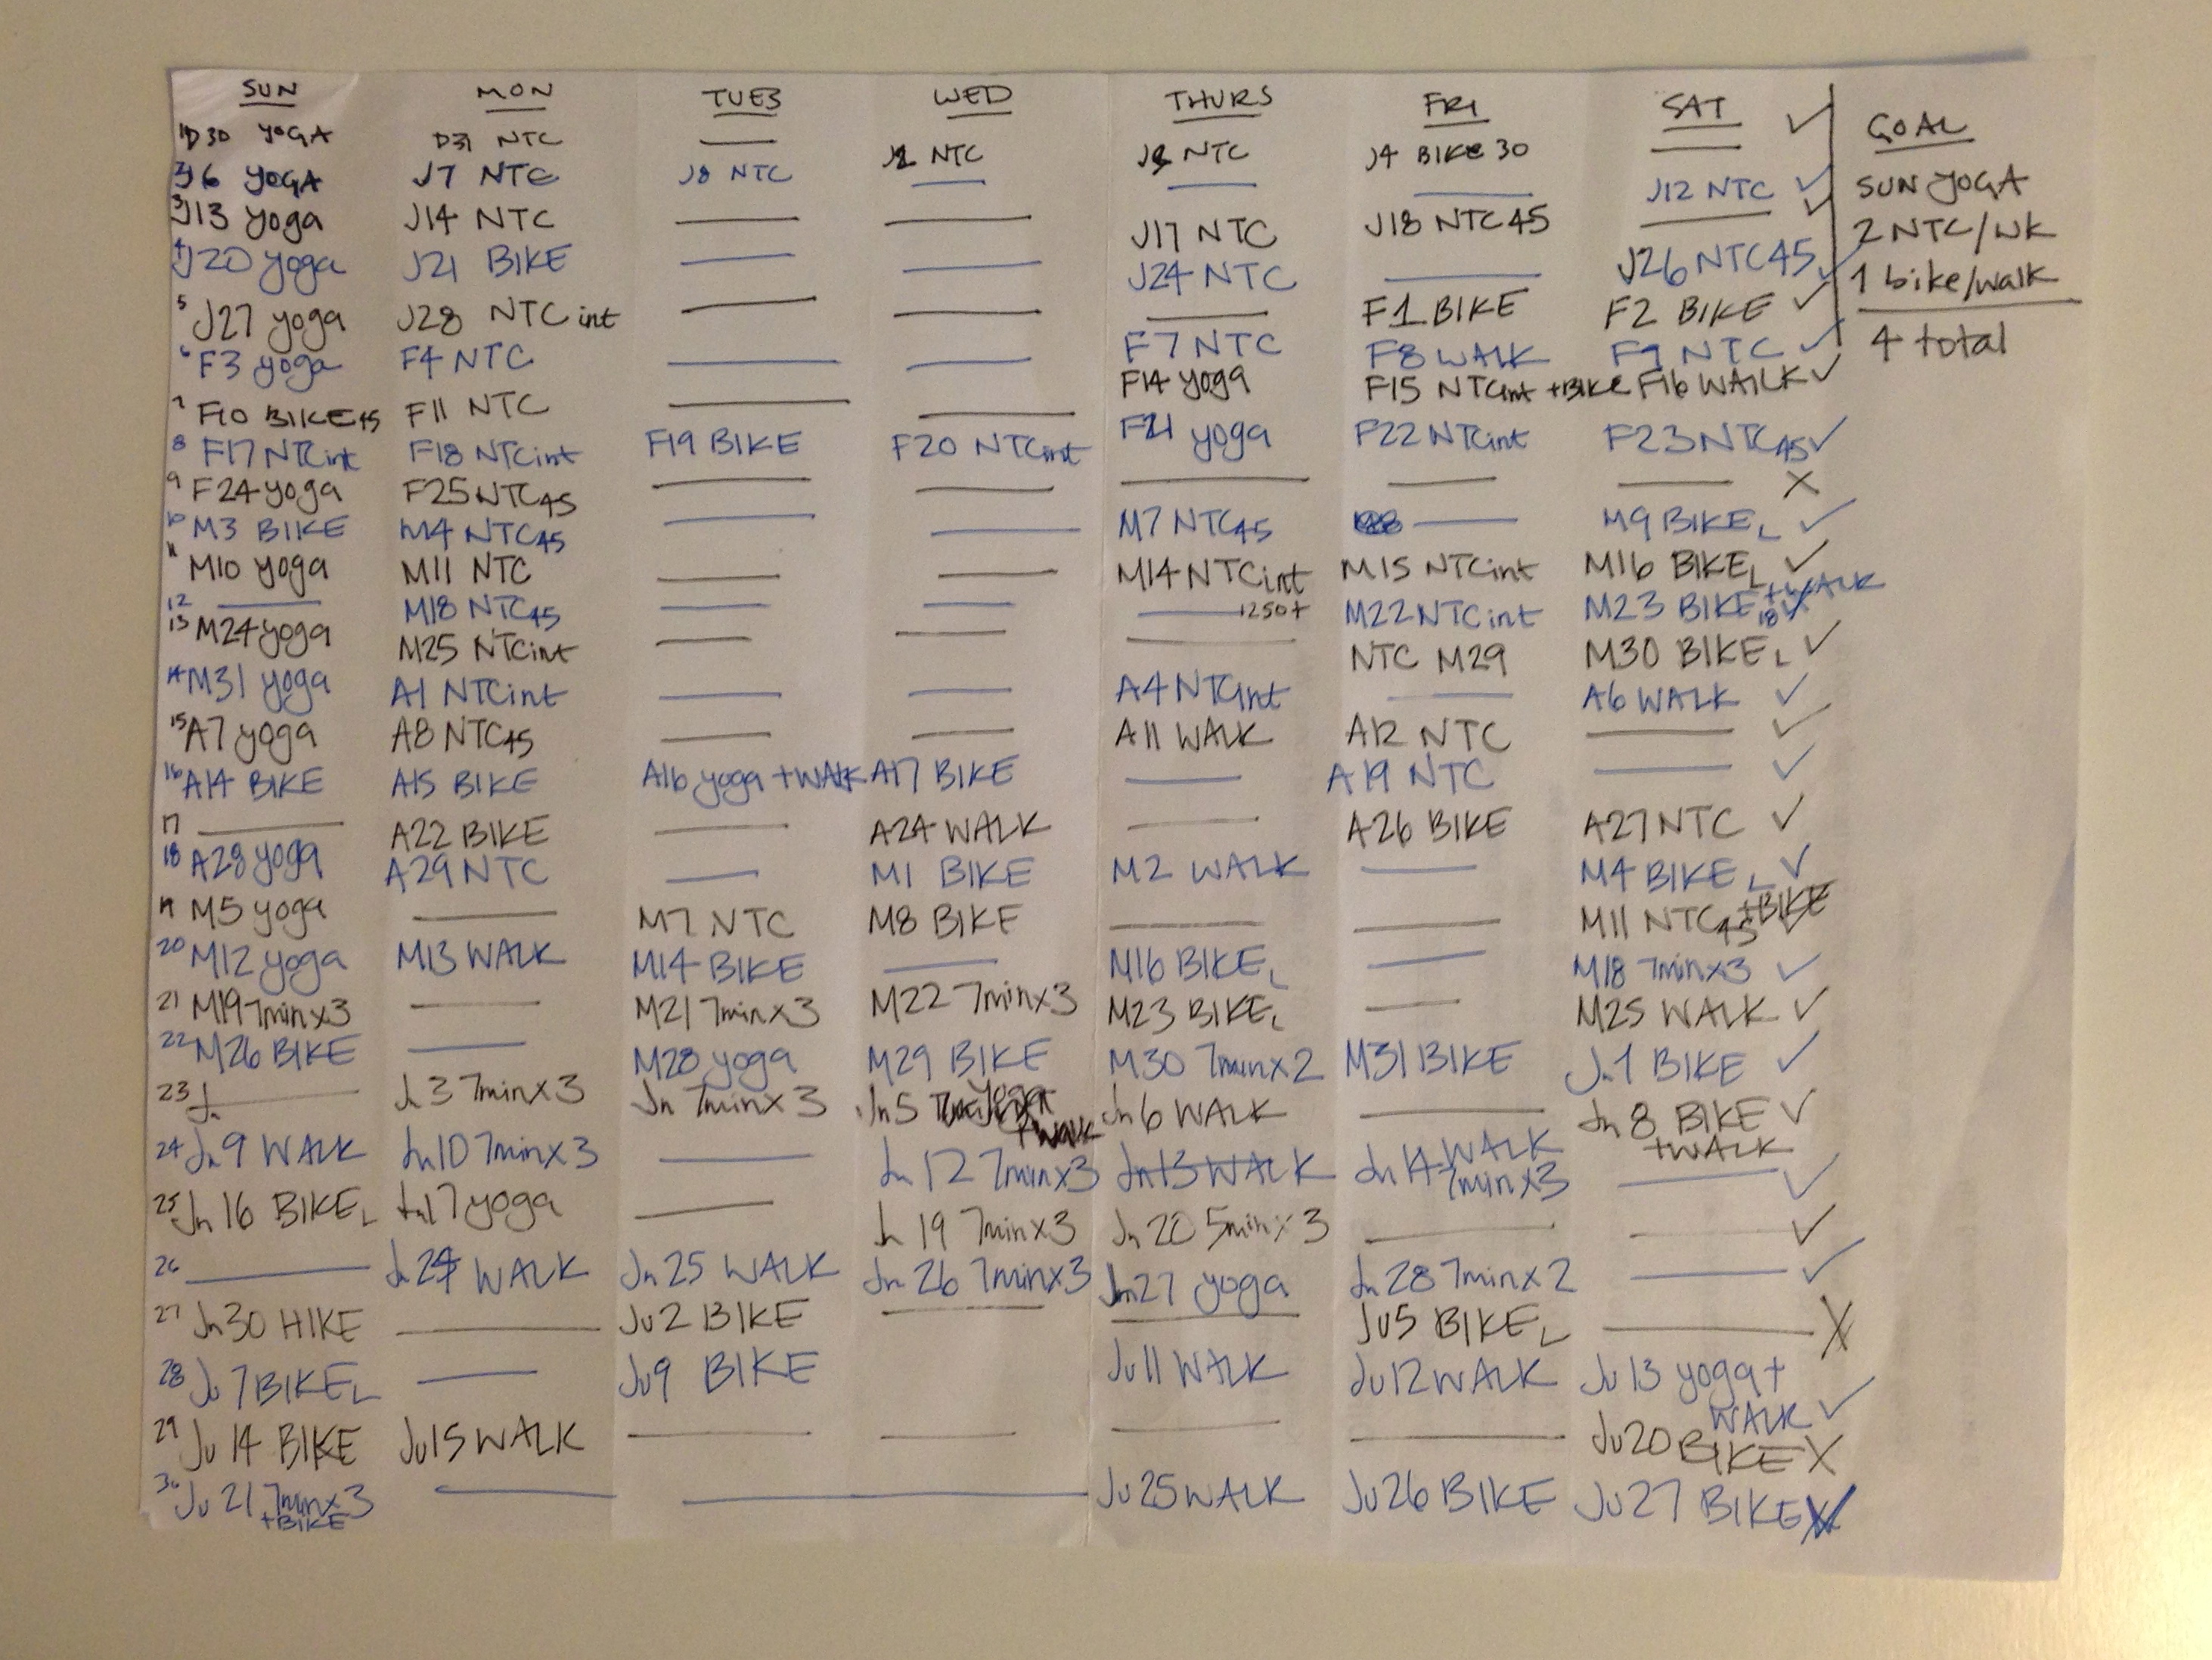 SUN MON TUES WED THURS FRI SAT ✓ GOAL
1 D30 YOGA D31 NTC — J2 NTC J3 NTC J4 BIKE 30 —
2 J6 YOGA J7 NTC J8 NTC — — — J12 NTC ✓ SUN YOGA
3 J13 yoga J14 NTC — — J17 NTC J18 NTC45 — ✓ 2 NTC/WK
4 J20 yoga J21 BIKE — — J24 NTC — J26 NTC45 ✓ 1 bike/walk
5 J27 yoga J28 NTC int — — — F1 BIKE F2 BIKE ✓ 4 total
6 F3 yoga F4 NTC — — F7 NTC F8 WALK F9 NTC ✓
7 F10 BIKE45 F11 NTC — — F14 yoga F15 NTCint +BIKE F16 WALK ✓
8 F17 NTCint F18 NTCint F19 BIKE F20 NTCint F21 yoga F22 NTCint F23 NTC45 ✓
9 F24 yoga F25 NTC45 — — — — — X
10 M3 BIKE M4 NTC45 — — M7 NTC45 — M9 BIKE L ✓
11 M10 yoga M11 NTC — — M14 NTCint M15 NTCint M16 BIKE L ✓
12 — M18 NTC45 — — — 1250+ M22 NTCint M23 BIKE 18 +WALK
13 M24 yoga M25 NTCint — — — NTC M29 M30 BIKE L ✓
14 M31 yoga A1 NTCint — — A4 NTCint — A6 WALK ✓
15 A7 yoga A8 NTC45 — — A11 WALK A12 NTC — ✓
16 A14 BIKE A15 BIKE A16 yoga +WALK A17 BIKE — A19 NTC — ✓
17 — A22 BIKE — A24 WALK — A26 BIKE A27 NTC ✓
18 A28 yoga A29 NTC — M1 BIKE M2 WALK — M4 BIKE L ✓
19 M5 yoga — M7 NTC M8 BIKE — — M11 NTC45 +BIKE
20 M12 yoga M13 WALK M14 BIKE — M16 BIKE L — M18 7minx3 ✓
21 M19 7minx3 — M21 7minx3 M22 7minx3 M23 BIKE L — M25 WALK ✓
22 M26 BIKE — M28 yoga M29 BIKE M30 7minx2 M31 BIKE Jn1 BIKE ✓
23 Jn — Jn 3 7minx3 Jn 7minx3 Jn5 yoga +Walk Jn 6 WALK — Jn 8 BIKE +WALK ✓
24 Jn 9 WALK Jn10 7minx3 — Jn 12 7minx3 Jn 13 WALK Jn 14 WALK 7minx3 — ✓
25 Jn 16 BIKE L Jn17 yoga — Jn 19 7minx3 Jn 20 5minx3 — — ✓
26 — Jn 24 WALK Jn 25 WALK Jn 26 7minx3 Jn27 yoga Jn 28 7minx2 — ✓
27 Jn30 HIKE — Ju2 BIKE — — Ju5 BIKE L — X
28 Ju 7 BIKE L — Ju9 BIKE Ju11 WALK Ju12 WALK Ju 13 yoga + WALK ✓
29 Ju 14 BIKE Ju15 WALK — — — — Ju20 BIKE X
30 Ju 21 7minx3 +BIKE — — — Ju 25 WALK Ju26 BIKE Ju 27 BIKE